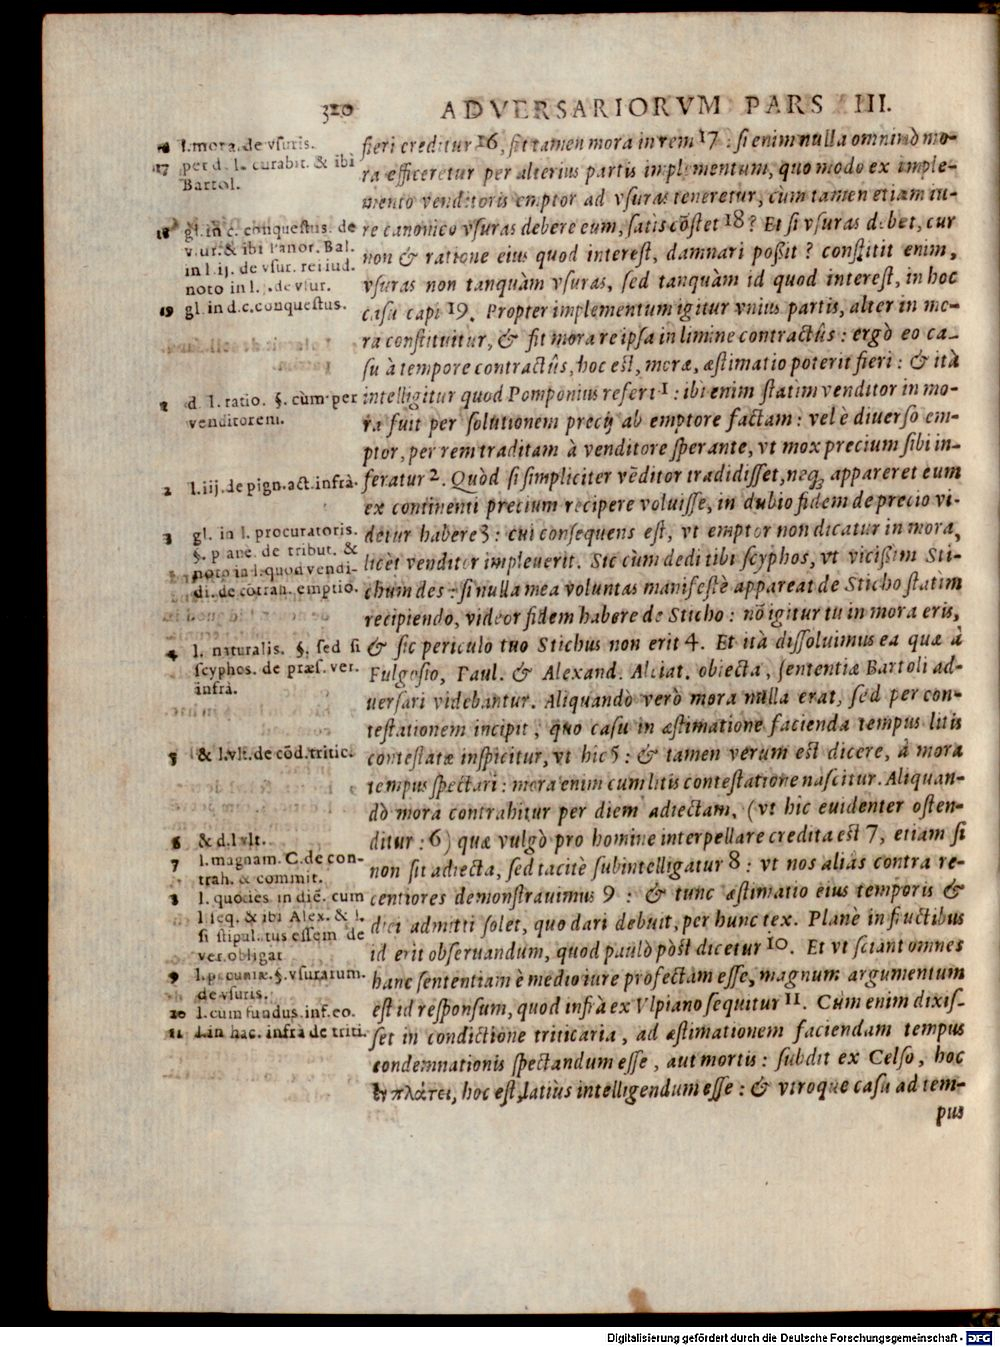 320 ADVERSARIORVM PARS III.
16 l.mora.de vſuris.
17 per d. l. curabit. & ibi
Bartol.
18 gl.in c. conqueſtus. de
v.ur.& ibi Panor. Bal.
in l.ij. de vſur. rei iud.
noto in l. .de vſur.
19 gl.in d.c.conqueſtus.
1 d. l. ratio. §. cùm per
venditorem.
2 l.iij.de pign.act.infrà.
3 gl. in l. procuratoris.
§. plane. de tribut. &
noto in l.quod vendi-
di. de cōtrah. emptio.
4 l. naturalis. §. ſed ſi
ſcyphos. de præſ. ver.
infrà.
5 & l.vlt.de cōd.tritic.
6 & d.l vlt.
7 l.magnam.C.de con-
trah. & commit.
8 l. quoties in diē. cum
l ſeq. & ibi Alex. & l.
ſi ſtipulatus eſſem de
ver.obligat
9 l.pecuniæ.§.vſurarum.
de vſuris.
10 l.cum fundus.inf.eo.
11 d.in hac. infrà de triti.
fieri creditur 16, ſit tamen mora in rem 17 : ſi enim nulla omninò mo-
ra efficeretur per alterius partis implementum, quo modo ex imple-
mento venditoris emptor ad vſuras teneretur, cùm tamen etiam iu-
re canonico vſuras debere eum, ſatis cōſtet 18 ? Et ſi vſuras debet, cur
non & ratione eius quod intereſt, damnari poßit ? conſtitit enim,
vſuras non tanquàm vſuras, ſed tanquàm id quod intereſt, in hoc
caſu capi 19. Propter implementum igitur vnius partis, alter in mo-
ra conſtituitur, & fit mora re ipſa in limine contractûs : ergò eo ca-
ſu à tempore contractûs, hoc eſt, moræ, æſtimatio poterit fieri : & ità
intelligitur quod Pomponius refert 1 : ibi enim ſtatim venditor in mo-
ra fuit per ſolutionem precij ab emptore factam : vel è diuerſo em-
ptor, per rem traditam à venditore ſperante, vt mox precium ſibi in-
feratur 2. Quòd ſi ſimpliciter vēditor tradidiſſet, neq; appareret eum
ex continenti precium recipere voluiſſe, in dubio fidem de precio vi-
detur habere 3 : cui conſequens eſt, vt emptor non dicatur in mora,
licèt venditor impleuerit. Sic cùm dedi tibi ſcyphos, vt vicißim Sti-
chum des : ſi nulla mea voluntas manifeſtè appareat de Sticho ſtatim
recipiendo, videor fidem habere de Sticho : nō igitur tu in mora eris,
& ſic periculò tuo Stichus non erit 4. Et ità diſſoluimus ea quæ à
Fulgoſio, Paul. & Alexand. Alciat. obiecta, ſententiæ Bartoli ad-
uerſari videbantur. Aliquandò verò mora nulla erat, ſed per con-
teſtationem incipit, quo caſu in æſtimatione facienda tempus litis
conteſtatæ inſpicitur, vt hic 5 : & tamen verum eſt dicere, à mora
tempus ſpectari : mora enim cum litis conteſtatione naſcitur. Aliquan-
dò mora contrahitur per diem adiectam, (vt hic euidenter oſten-
ditur : 6) quæ vulgò pro homine interpellare credita eſt 7, etiam ſi
non ſit adiecta, ſed tacitè ſubintelligatur 8 : vt nos aliâs contra re-
centiores demonſtrauimus 9 : & tunc æſtimatio eius temporis &
diei admitti ſolet, quo dari debuit, per hunc tex. Planè in fructibus
id erit obſeruandum, quod paulò pòſt dicetur 10. Et vt ſciant omnes
hanc ſententiam è medio iure profectam eſſe, magnum argumentum
eſt id reſponſum, quod infrà ex Vlpiano ſequitur 11. Cùm enim dixiſ-
ſet in condictione triticaria, ad æſtimationem faciendam tempus
condemnationis ſpectandum eſſe, aut mortis : ſubdit ex Celſo, hoc
ἐν πλάτει, hoc eſt, latiùs intelligendum eſſe : & vtroque caſu ad tem-
pus
Digitalisierung gefördert durch die Deutsche Forschungsgemeinschaft - DFG